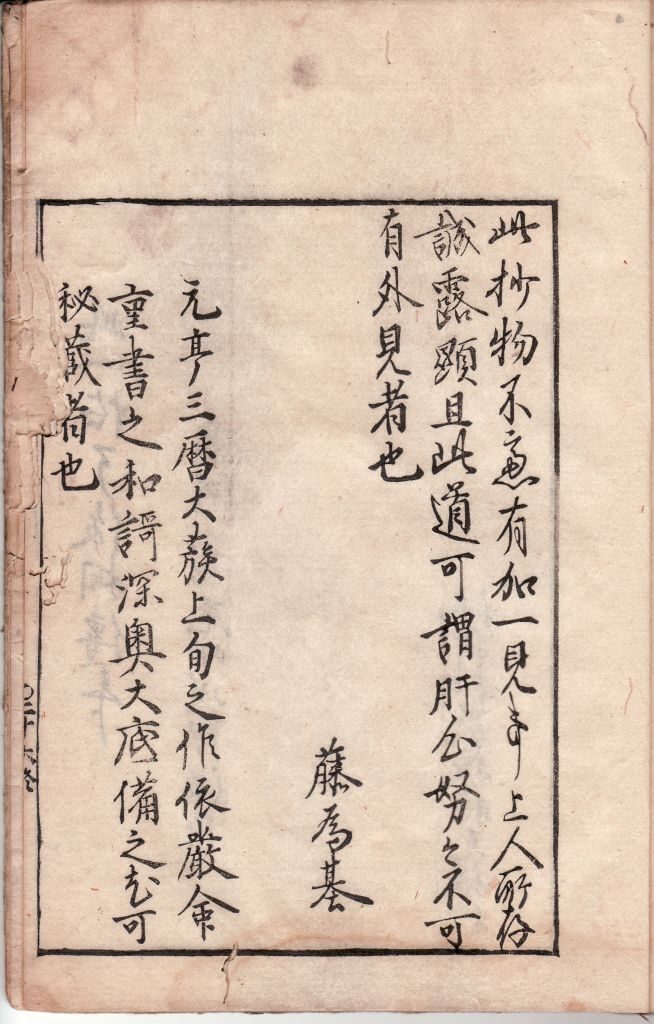 此抄物不慮有加一見事上人所存
誠露顕且此道可謂肝心努々不可
有外見者也
藤為基
元亨三暦大蔟上旬之作依厳命
重書之和謌深奥大底備之尤可
秘蔵者也
三十六終